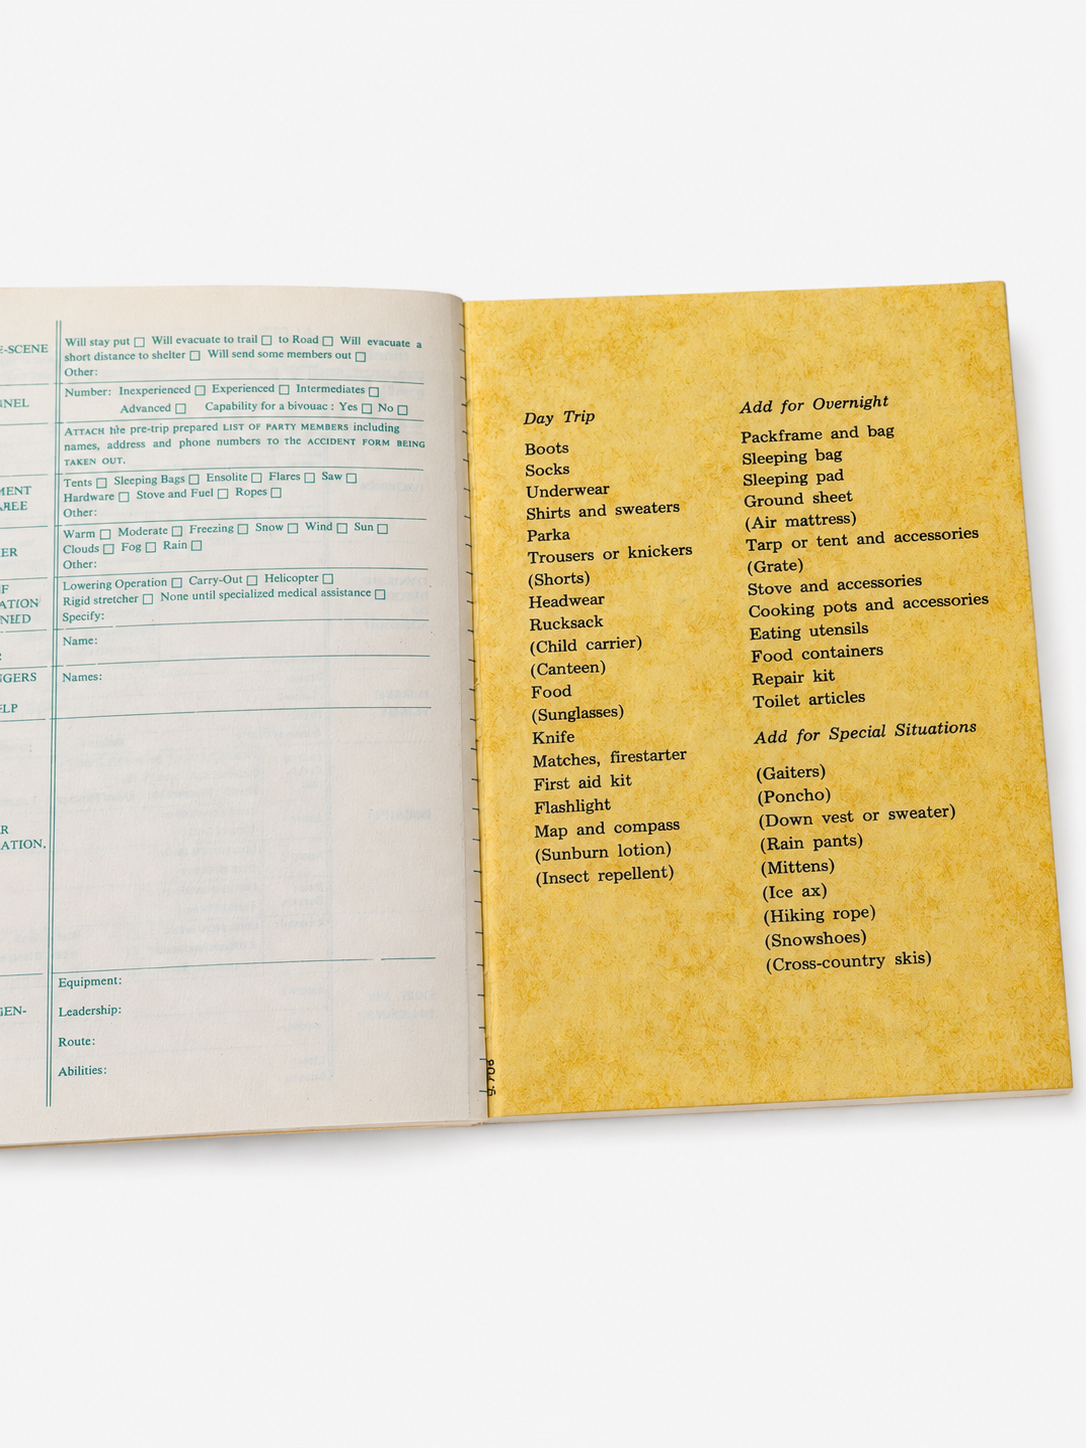 E-SCENE
NNEL
MENT
AREE
ER
F
ATION
NED
:
NGERS
ELP
R
ATION.
GEN-
Will stay put □ Will evacuate to trail □ to Road □ Will evacuate a
short distance to shelter □ Will send some members out □
Other:
Number: Inexperienced □ Experienced □ Intermediates □
Advanced □ Capability for a bivouac : Yes □ No □
ATTACH the pre-trip prepared LIST OF PARTY MEMBERS including
names, address and phone numbers TO THE ACCIDENT FORM BEING
TAKEN OUT.
Tents □ Sleeping Bags □ Ensolite □ Flares □ Saw □
Hardware □ Stove and Fuel □ Ropes □
Other:
Warm □ Moderate □ Freezing □ Snow □ Wind □ Sun □
Clouds □ Fog □ Rain □
Other:
Lowering Operation □ Carry-Out □ Helicopter □
Rigid stretcher □ None until specialized medical assistance □
Specify:
Name:
Names:
Equipment:
Leadership:
Route:
Abilities:
Day Trip
Boots
Socks
Underwear
Shirts and sweaters
Parka
Trousers or knickers
(Shorts)
Headwear
Rucksack
(Child carrier)
(Canteen)
Food
(Sunglasses)
Knife
Matches, firestarter
First aid kit
Flashlight
Map and compass
(Sunburn lotion)
(Insect repellent)
Add for Overnight
Packframe and bag
Sleeping bag
Sleeping pad
Ground sheet
(Air mattress)
Tarp or tent and accessories
(Grate)
Stove and accessories
Cooking pots and accessories
Eating utensils
Food containers
Repair kit
Toilet articles
Add for Special Situations
(Gaiters)
(Poncho)
(Down vest or sweater)
(Rain pants)
(Mittens)
(Ice ax)
(Hiking rope)
(Snowshoes)
(Cross-country skis)